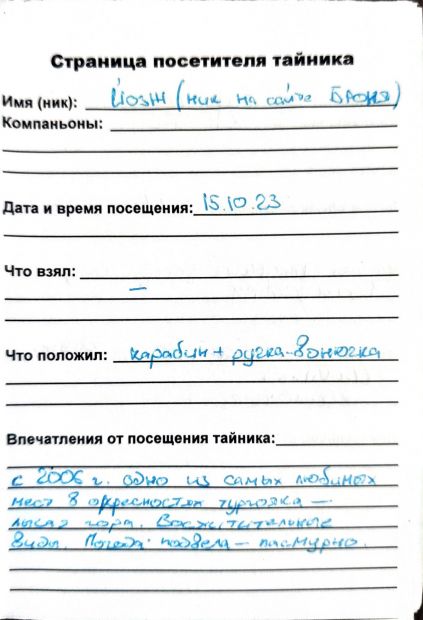 Страница посетителя тайника
Имя (ник): Йозж (ник на сайте Броня)
Компаньоны:
Дата и время посещения: 15.10.23
Что взял:
—
Что положил: карабин + ручка-вонючка
Впечатления от посещения тайника:
с 2006 г. одно из самых любимых
мест в окресностях тургояка —
лысая гора. Восхитительные
виды. Погода подвела — пасмурно.